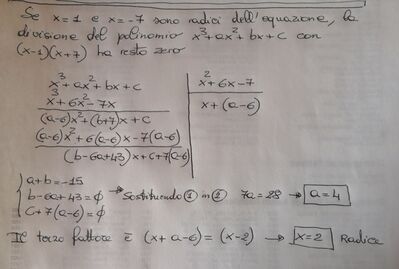 Se x=1 e x=-7 sono radici dell'equazione, la
divisione del polinomio x³+ax²+bx+c con
(x-1)(x+7) ha resto zero
x³+ax²+bx+c | x²+6x-7
x³+6x²-7x | x+(a-6)
(a-6)x²+(b+7)x+c
(a-6)x²+6(a-6)x-7(a-6)
(b-6a+43)x+c+7(a-6)
a+b=-15
b-6a+43=0 → Sostituendo ① in ② 7a=28 → a=4
c+7(a-6)=0
Il terzo fattore è (x+a-6)=(x-2) → x=2 Radice